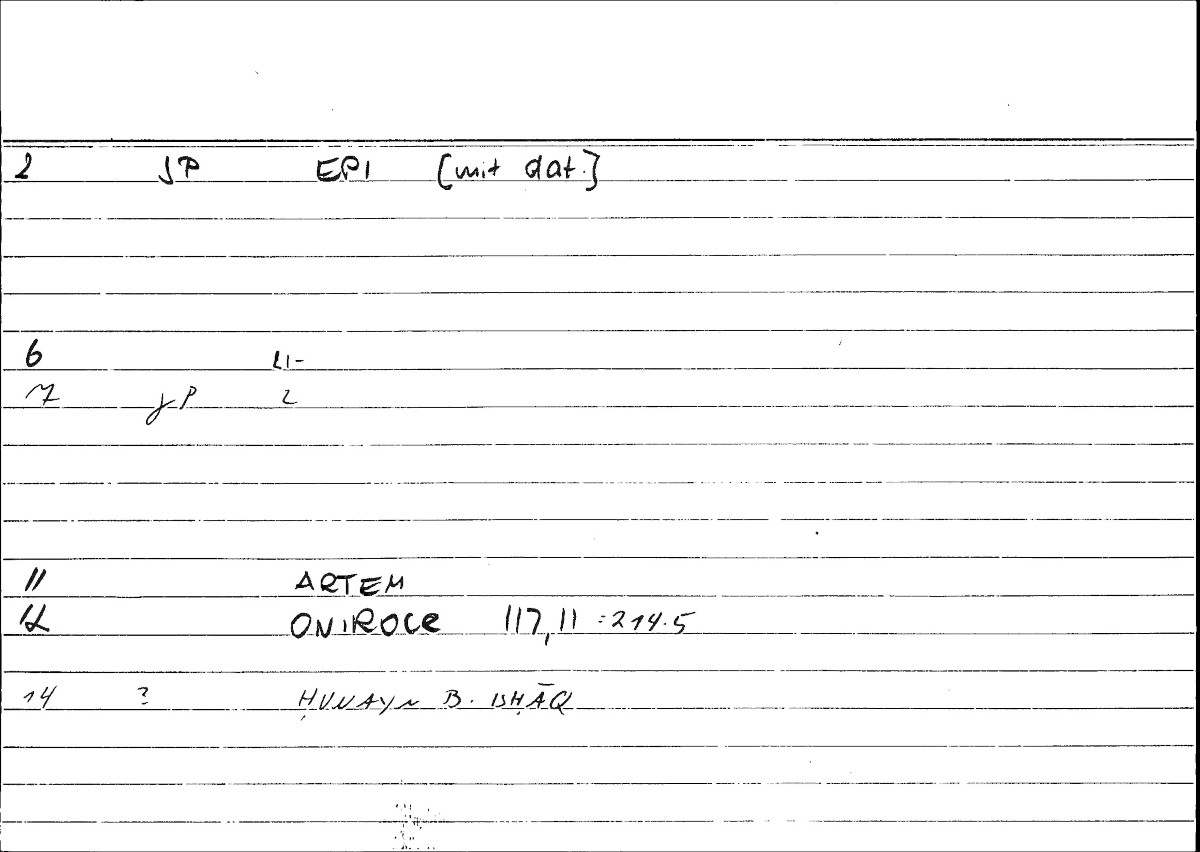 2 JP EPI [mit dat.]
6 LI-
7 JP 2
11 ARTEM
12 ONIROCR 117,11 = 214.5
14 ? ḤUNAYN B. ISḤĀQ